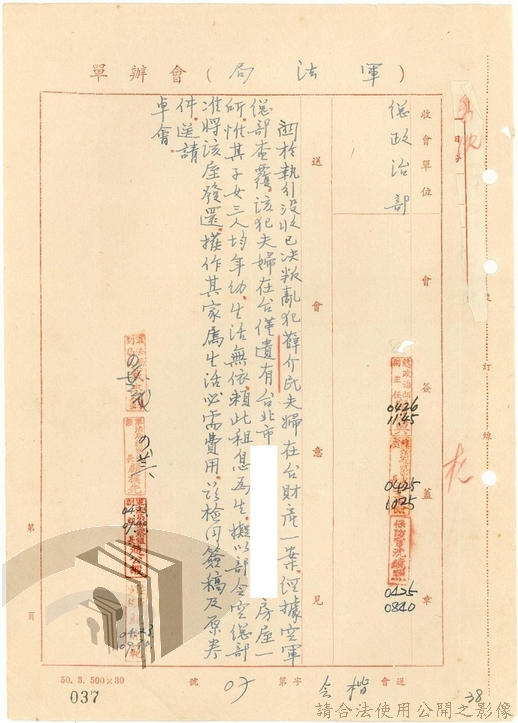 軍法局（會辦單）
收會單位
總政治部
會簽蓋章
0426
11:45
0425
1025
0425
0840
送會意見
關於執行沒收已決叛亂犯薛介民夫婦在台財產一案，經據空軍
總部查覆，該犯夫婦在台僅遺有台北市
房屋一
所，惟其子女三人均年幼，生活無依，賴此租息為生，擬以部令空總部
准將該屋發還，撥作其家屬生活必需費用，謹檢同簽稿及原卷
件，送請
卓會
訂線
第 頁
送會
楷会字第
07
號
50. 3. 500×30
037
38
請合法使用公開之影像